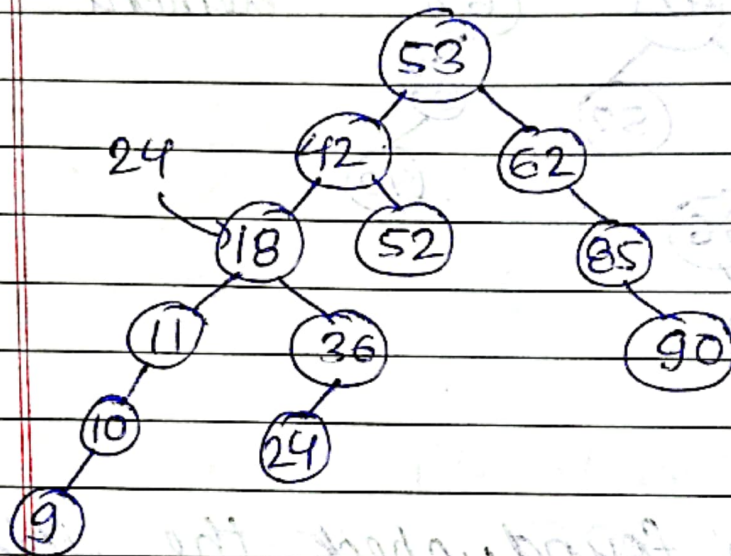 53
42 62
24
18 52 85
11 36 90
10 24
9